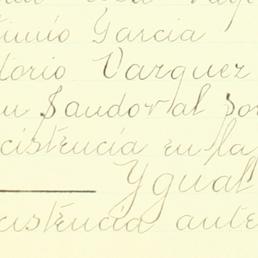 Garcia
torio Vazquez
Sandoval Sot
cistencia en la
Ygual
cistencia ante